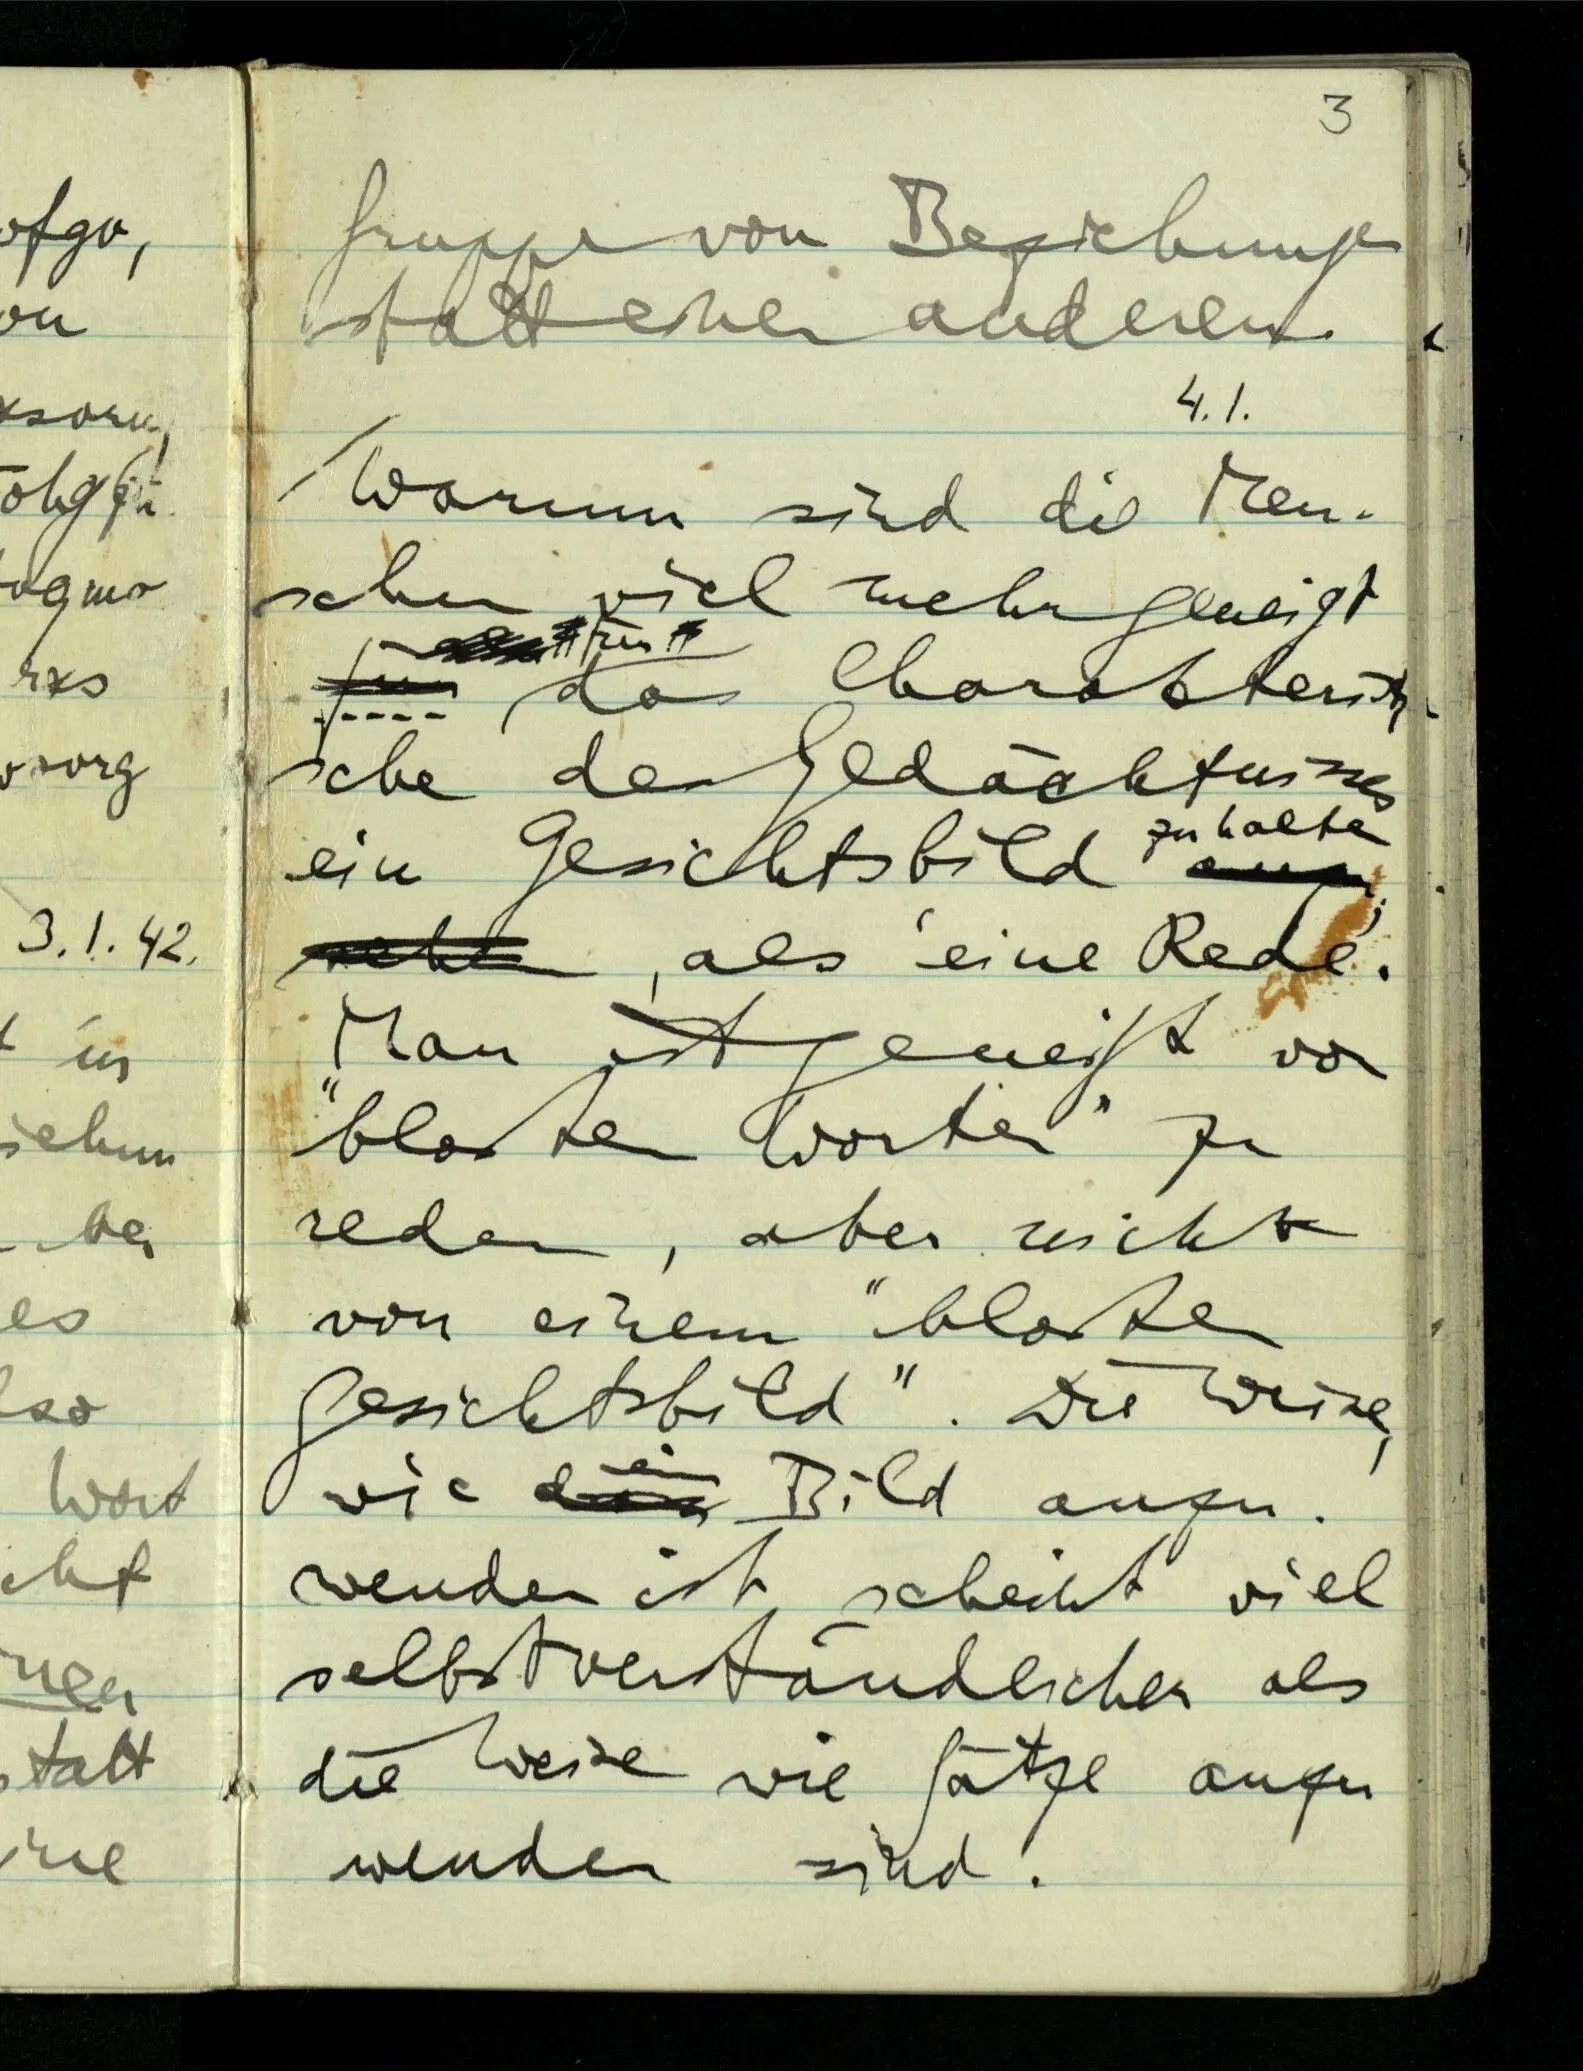 ofgv,
on
xsorn,
ogmo
rxs
osorg
3.1.42.
t in
bei
es
lso
Wort
cht
statt
ine
3
Gruppe von Beziehungen
statt einer anderen.
4.1.
/ Warum sind die Men-
schen viel mehr geneigt
für für das Charakteristi-
sche des Gedächtnisses
ein Gesichtsbild zu halten anzu-
sehen, als 'eine Rede'.
Man ist geneigt von
"bloßen Worten" zu
reden, aber nicht
von einem "bloßen
Gesichtsbild". Die Weise,
wie das ein Bild anzu-
wenden ist scheint viel
selbstverständlicher als
die Weise wie Sätze anzu
wenden sind.